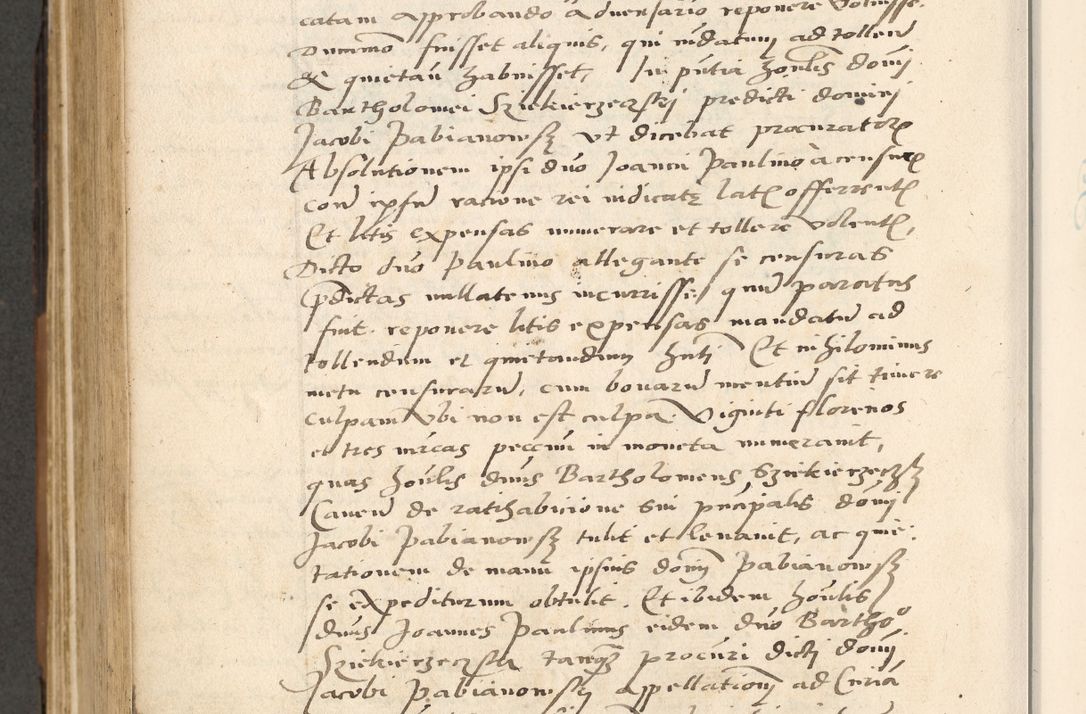 catam approbando aduersario reponere voluisse.
Dummō fuisset aliquis, qui mdatum ad tollend
& quietañ habuisset, In pñtia hoñlis domi
Bartholomei Sziekierzeczkij predicti domini
Jacobi Pabianowsky vt dicebat procuratoris
Absolutionem ipsi dño Joanni Paulino à censuris
con ipsum racione rei iudicatę latis offerentis
Et litis expensas numerare et tollere volentis,
Dicto dño Paulino allegante se censuras
pdictas nullatenus incurrisse, quin paratus
fuit reponere litis expensas mandatum ad
tollendum et quietandum hñti Et nihilominus
metu censurarum, cum bonarum mentium sit timere
culpam vbi non est culpa. Viginti florenos
et tres mrcas peccuñ in moneta numerauit,
quas hoñlis dñus Bartholomeus Sziekierzeczky
Cauen de ratihabicione sui principalis domi
Jacobi Pabianowsky tulit et leuauit, ac quie-
tationem de manu ipsius domi Pabianowsky
se expediturum obtulit. Et ibidem hoñlis
dñus Joannes Paulinus eidem dño Bartho°
Sziekierzeczky tanq procuri dicti domi
Jacobi Pabianowsky appellationem ad Curiā